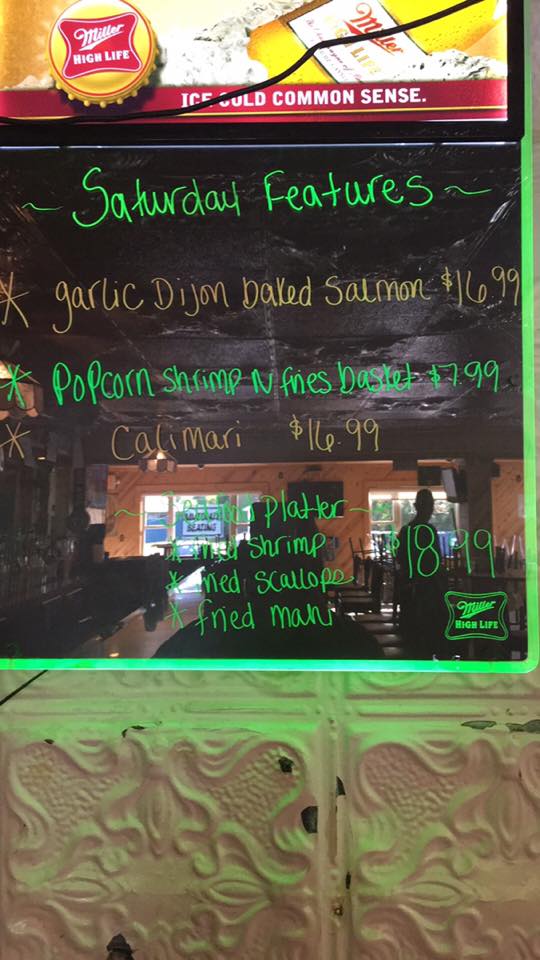 Miller
HIGH LIFE
Miller
HIGH LIFE
ICE COLD COMMON SENSE.
~ Saturday Features ~
* garlic Dijon baked Salmon $16.99
* Popcorn shrimp N fries basket $7.99
* Calimari $16.99
~ Seafood Platter ~
* fried shrimp
* fried scallops $18.99
* fried mahi
Miller
HIGH LIFE